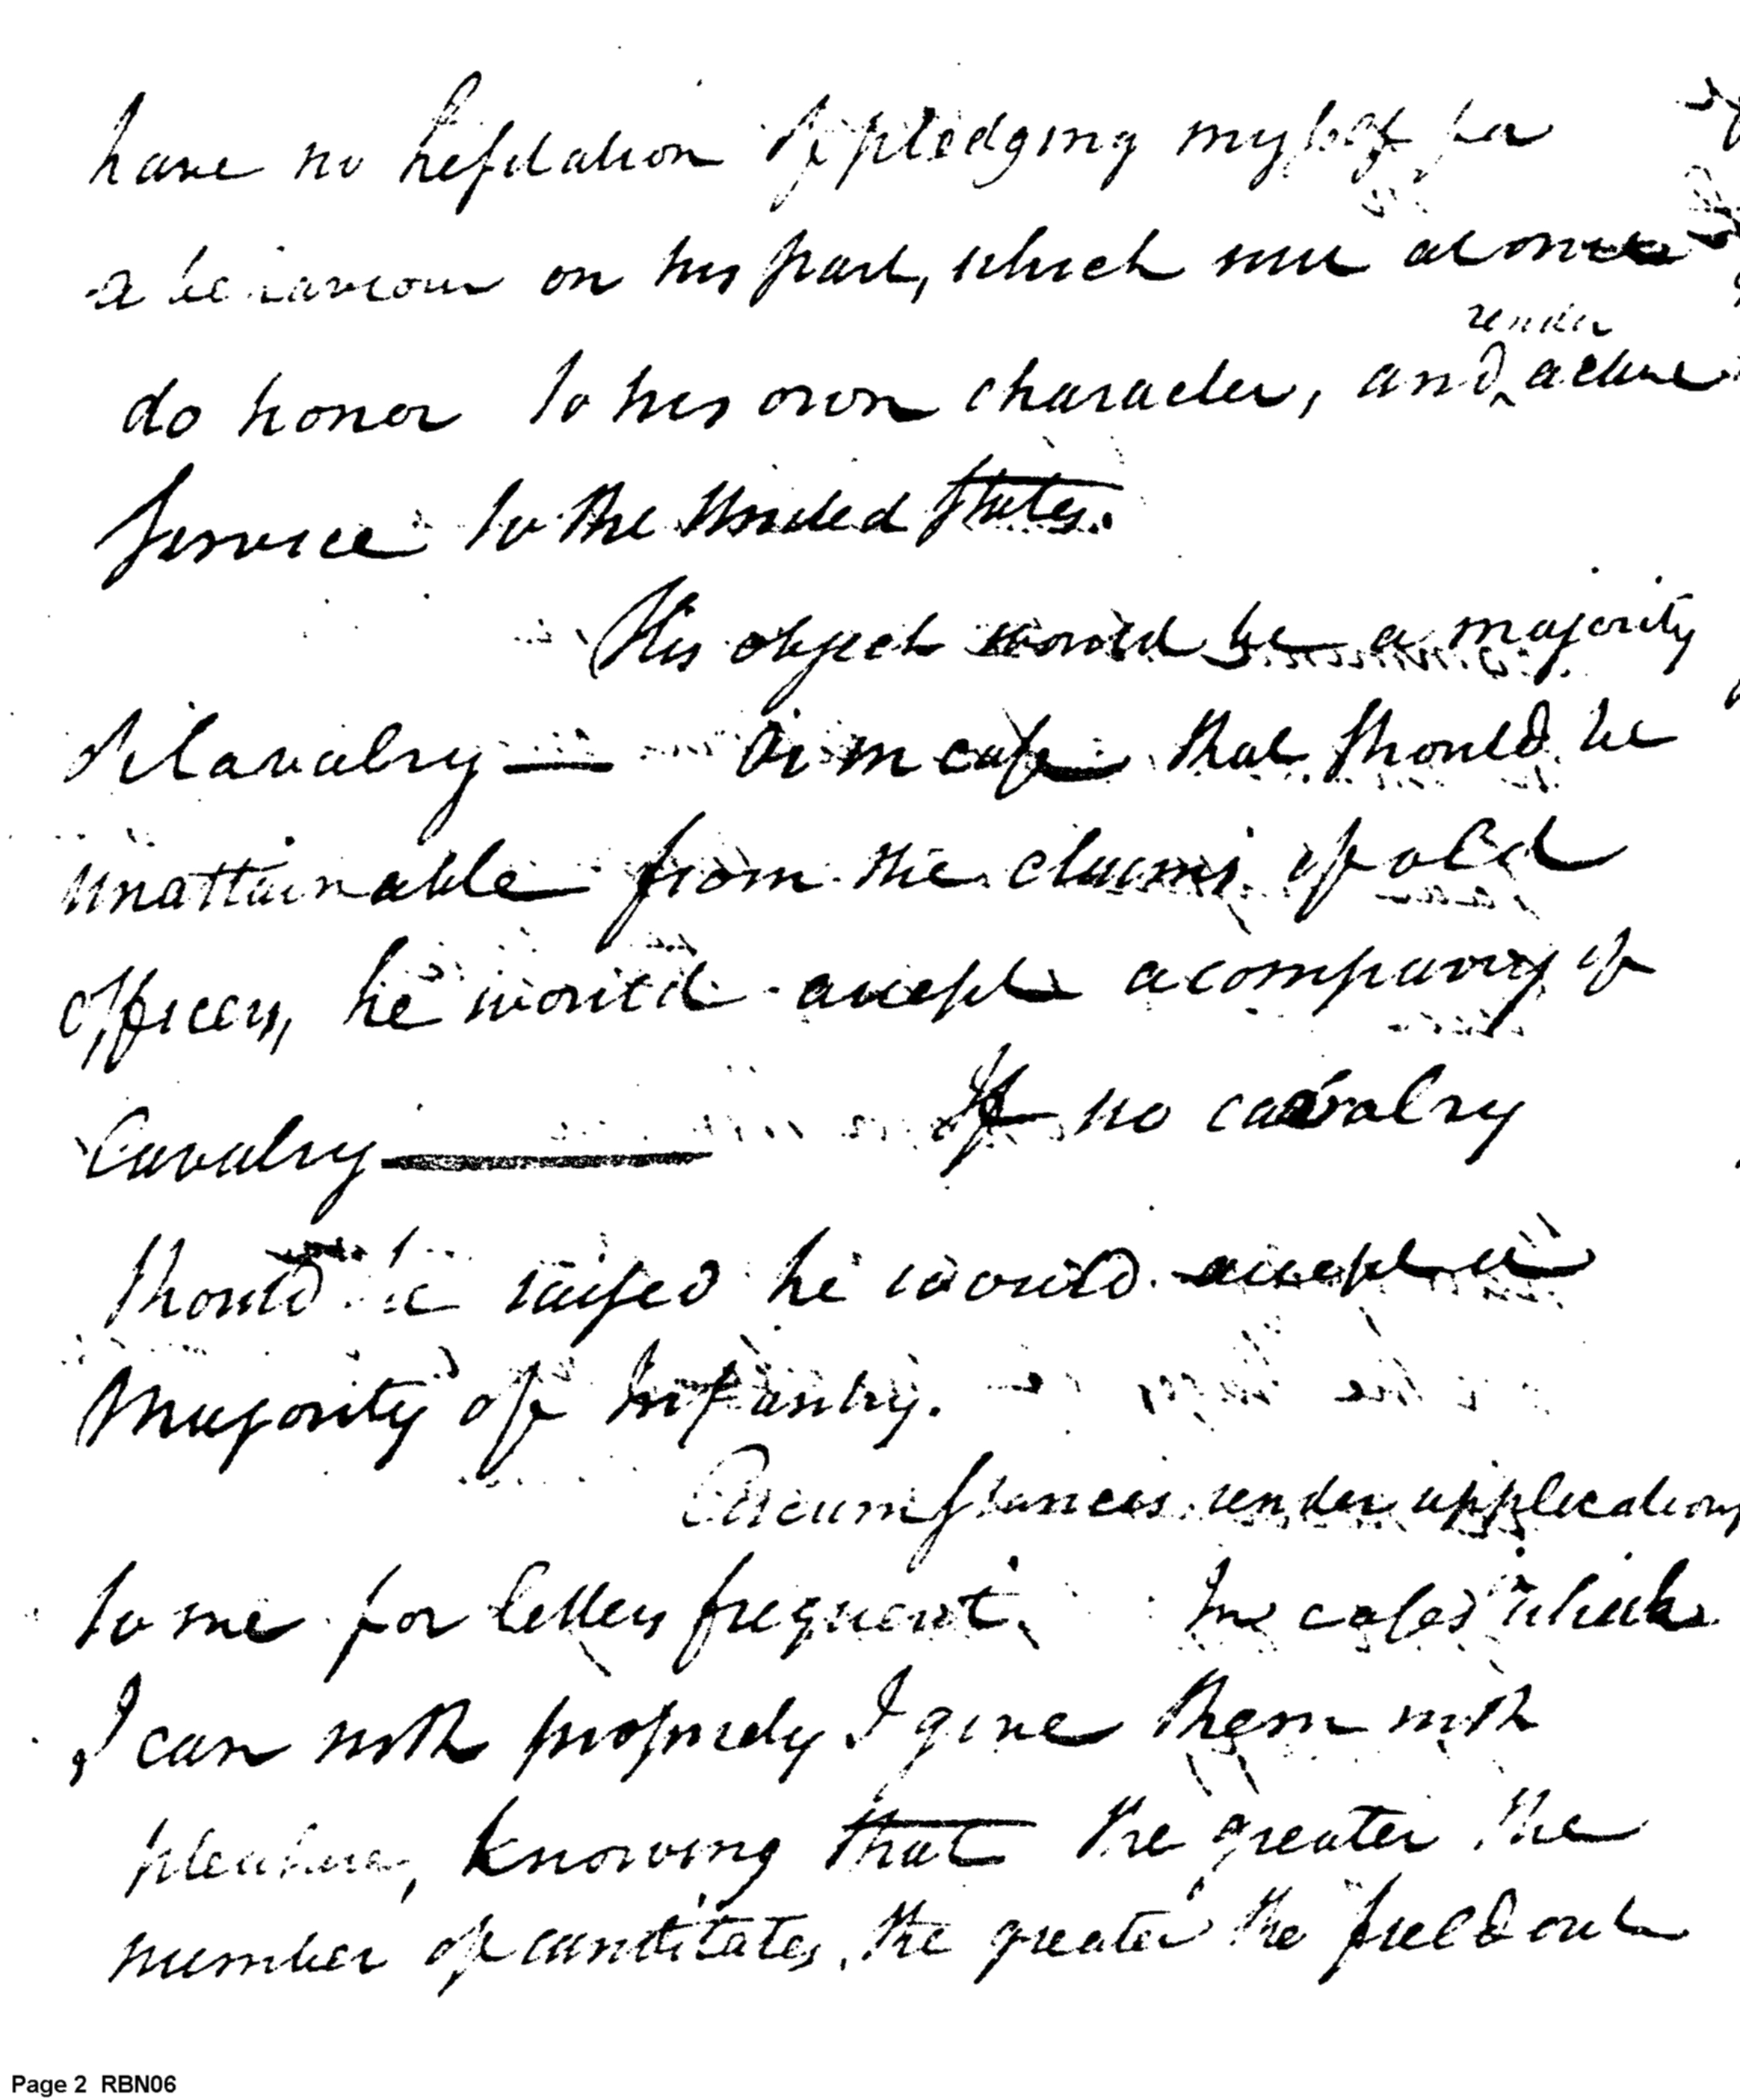 have no hesitation of pledging myself for
a behaviour on his part, which will at once
render
do honor to his own character, and active
Service to the United States.
His object would be a majority
of Cavalry — or in case that should be
unattainable from the claims of old
officers, he would accept a company of
Cavalry — If no cavalry
should be raised he would accept a
Majority of Infantry.
Circumstances render applications
to me for letters frequent. In cases which
I can with propriety I give them with
pleasure, knowing that the greater the
number of canditates, the greater the field out
Page 2 RBN06